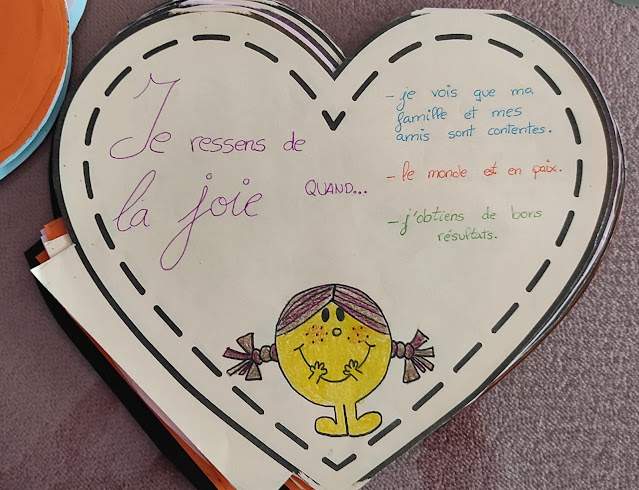 Je ressens de
la joie QUAND...
- je vois que ma
famille et mes
amis sont contentes.
- le monde et en paix.
- j'obtiens de bons
résultats.